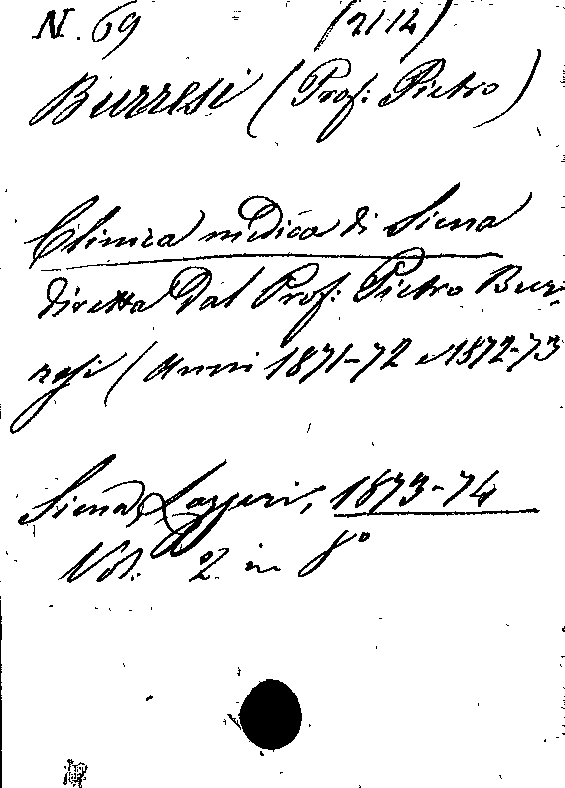 N. 69 (2112)
Burresi (Prof: Pietro)
Clinica medica di Siena
diretta dal Prof: Pietro Bur-
resi (Anni 1871-72 e 1872-73
Siena, Lazzeri, 1873-74
Vol. 2 in 8°